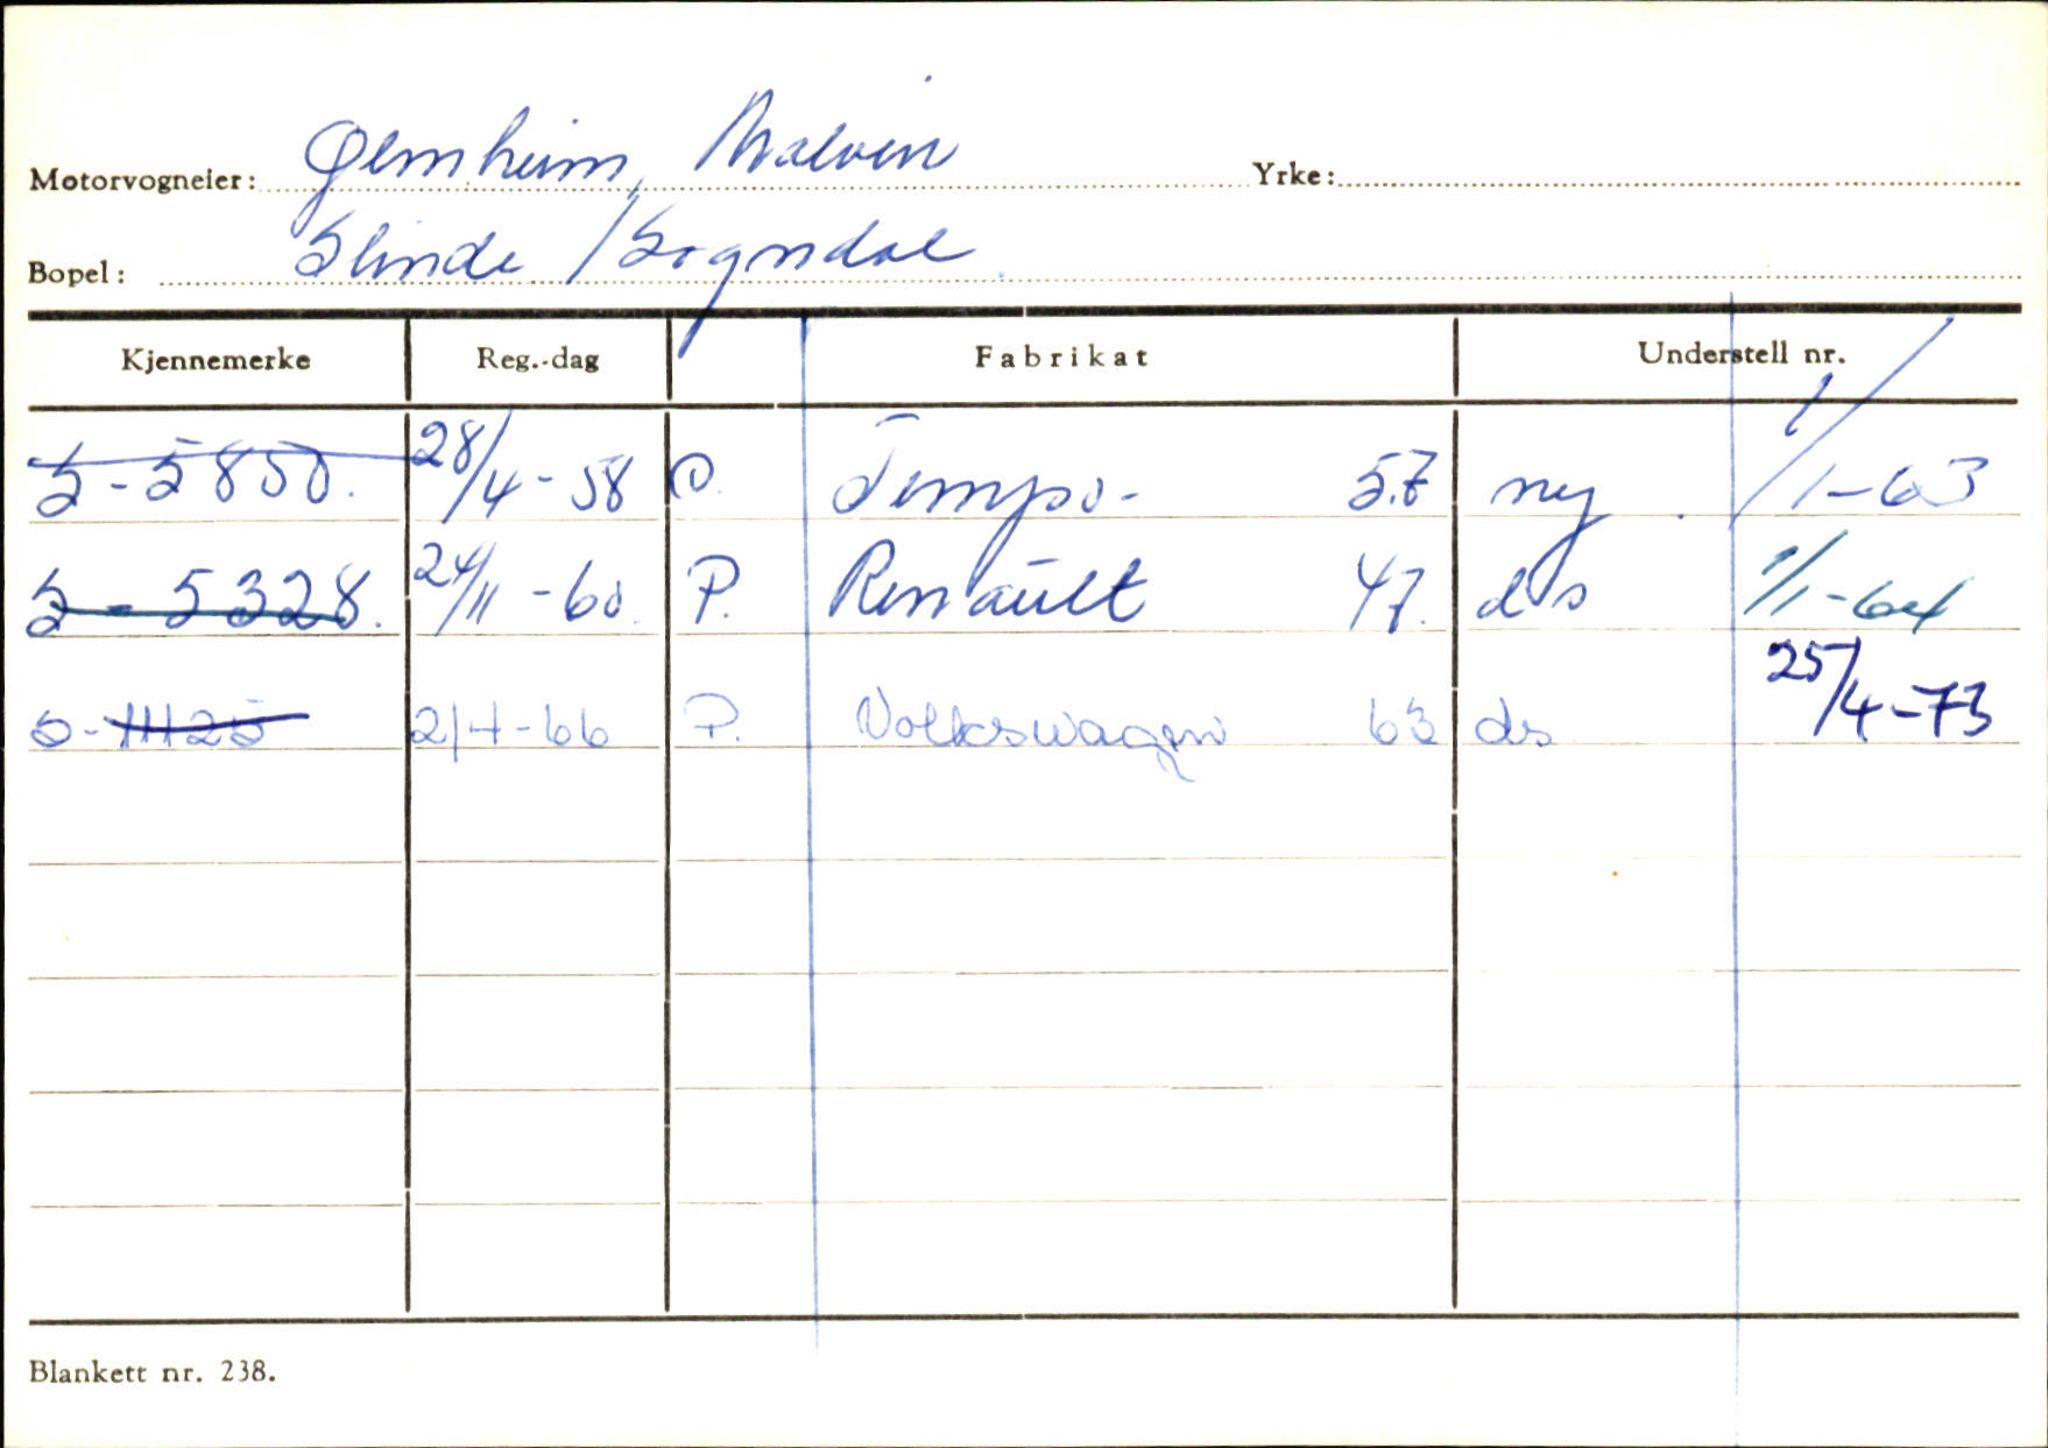 Motorvogneier: Ølmheim, Malvin Yrke:
Bopel: Slinde / Sogndal
Kjennemerke Reg.-dag Fabrikat Understell nr.
S-5850. 28/4-58 P. Tempo- 57 ny 1/1-63
S-5328. 24/11-60. P. Renault 47. ds 1/1-64
S-11125 2/4-66 P. Volkswagen 63 ds 25/4-73
Blankett nr. 238.